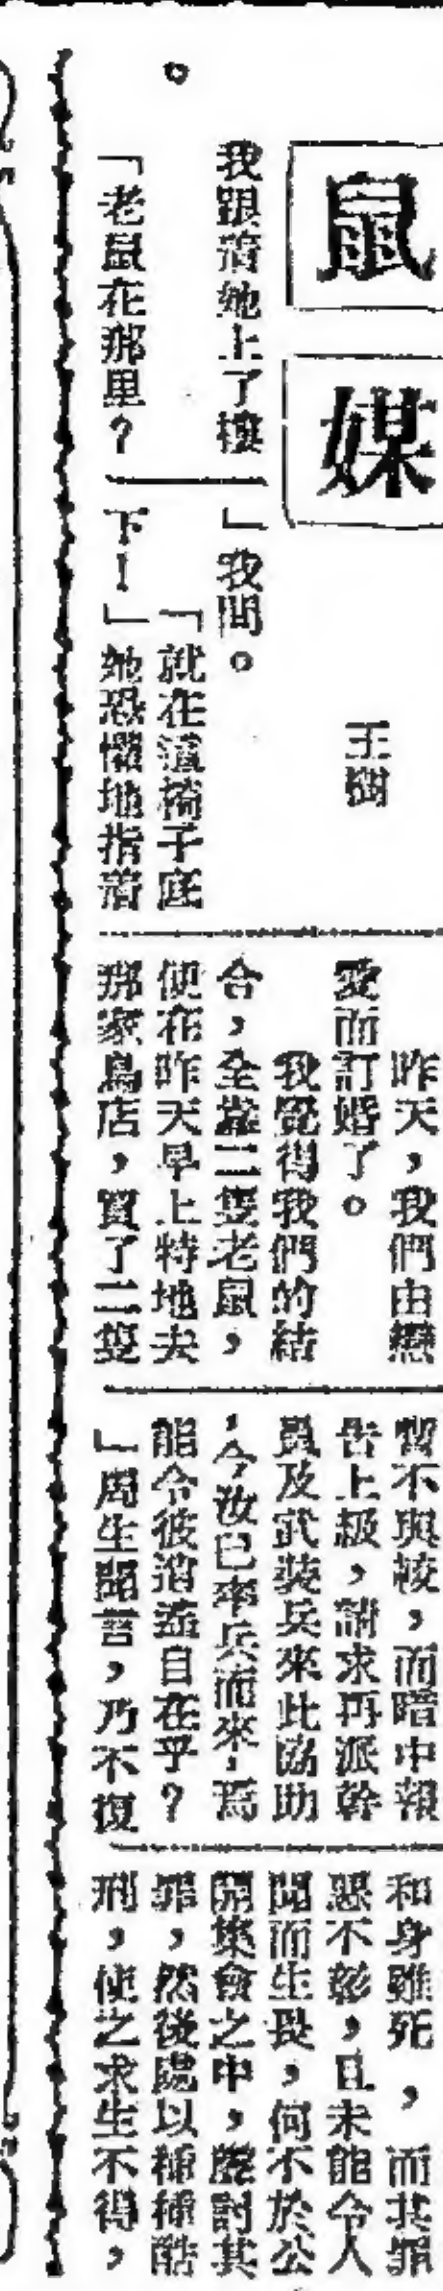 鼠媒
王樹
我跟着她上了樓
。
「老鼠在那里？
」我問。
「就在這椅子底
下！」她恐懼地指着
昨天，我們由戀
愛而訂婚了。
我覺得我們的結
合，全靠二隻老鼠，
便在昨天早上特地去
那家鳥店，買了二隻
暫不與較，而暗中報
告上級，請求再派幹
員及武裝兵來此協助
，今汝已率兵而來，焉
能令彼逍遙自在乎？
」周生聞言，乃不復
和身雖死，而其罪
惡不彰，且未能令人
聞而生畏，何不於公
開集會之中，聲討其
罪，然後處以種種酷
刑，使之求生不得，